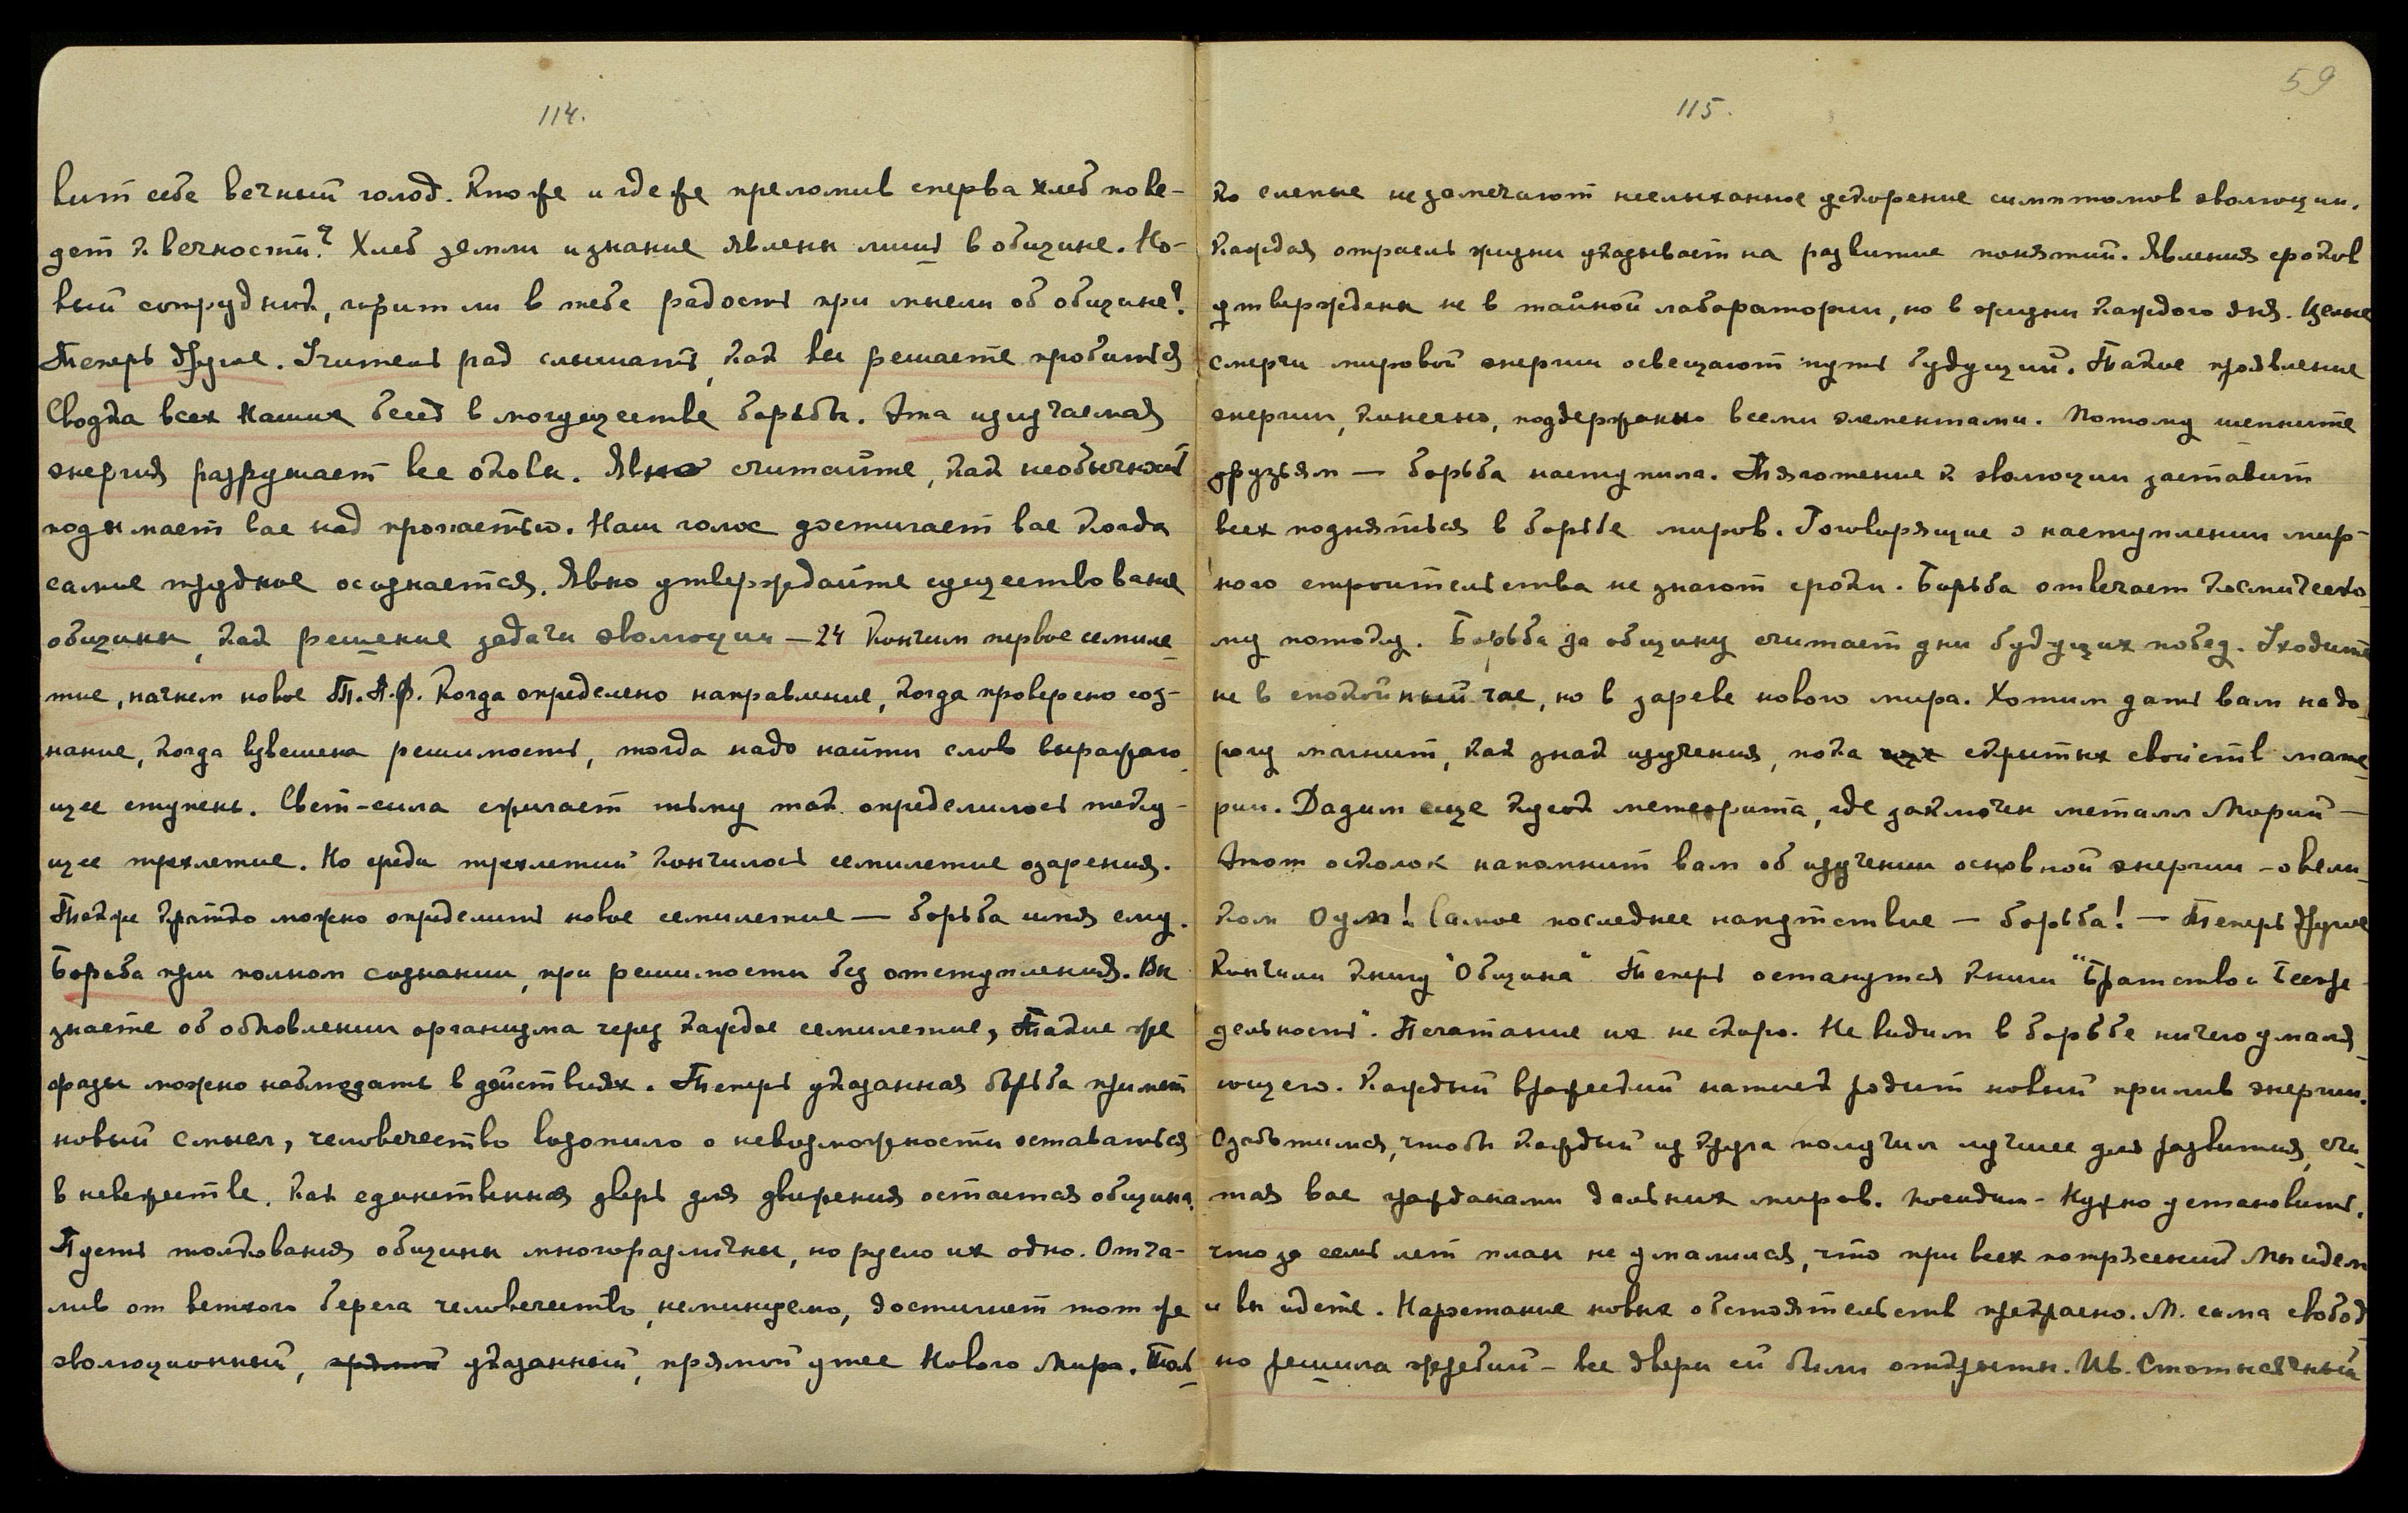 59
114.
вит себе вечный голод. Кто же и где же преломив сперва хлеб пове-
дет к вечности? Хлеб земли и знание явлены лишь в общине. Но-
вый сотрудник, горит ли в тебе радость при мысли об общине?
Теперь другое. Учитель рад слышать, как вы решаете пробиться
Сводка всех Наших бесед в могуществе борьбы. Эта изучаемая
энергия разрушает все оковы. Явно считайте, как необычность
подымает вас над пропастью. Наш голос достигает вас когда
самое трудное осознается. Явно утверждайте существование
общины, как решение задачи эволюции — 24 Кончим первое семиле-
тие, начнем новое Т.Л.Ф. Когда определено направление, когда проверено соз-
нание, когда взвешена решимость, тогда надо найти слово выражаю
щее ступень. Свет-сила сжигает тьму так определилось теку-
щее трехлетие. Но среди трехлетий кончилось семилетие озарения.
Также кратко можно определить новое семилетие — борьба имя ему.
Борьба при полном сознании, при решимости без отступления. Вы
знаете об обновлении организма через каждое семилетие, Такие же
фазы можно наблюдать в действиях. Теперь указанная борьба примет
новый смысл, человечество возопило о невозможности оставаться
в невежестве. Как единственная дверь для движения остается община.
Пусть толкования общины многоразличны, но русло их одно. Отча-
лив от ветхого берега человечество, неминуемо, достигнет тот же
эволюционный, прямой указанный, прямой утес Нового Мира. Толь
115.
ко слепые не замечают неслыханное ускорение симптомов эволюции.
Каждая отрасль жизни указывает на развитие понятий. Явления сроков
утверждены не в тайной лаборатории, но в жизни каждого дня. Целые
смерчи мировой энергии освещают путь будущий. Такое проявление
энергии, конечно, поддержано всеми элементами. Потому шепните
друзьям — борьба наступила. Тяготение к эволюции заставит
всех подняться в борьбе миров. Говорящие о наступлении мир-
ного строительства не знают сроки. Борьба отвечает космическо-
му потоку. Борьба за общину считает дни будущих побед. Уходите
не в спокойный час, но в зареве нового мира. Хотим дать вам на до-
рогу магнит, как знак изучения, пока скрытых свойств мате-
рии. Дадим еще кусок метеорита, где заключен металл Морий —
Этот осколок напомнит вам об изучении основной энергии — о вели-
ком Оум! Самое последнее напутствие — борьба! — Теперь другое
Кончили книгу "Община" Теперь останутся книги "Братство и Беспре-
дельность". Печатание их не скоро. Не видим в борьбе ничего умаля-
ющего. Каждый вражеский натиск родит новый прилив энергии.
Озаботимся, чтобы каждый из круга получил лучшее для развития, счи-
тая вас гражданами дальних миров. Посидим — Нужно установить,
что за семь лет план не умалился, что при всех потрясений Мы идем
и вы идете. Нарастание новых обстоятельств прекрасно. М. сама свобод
но решила жребий — все двери ей были открыты. Ив. Стотысячный